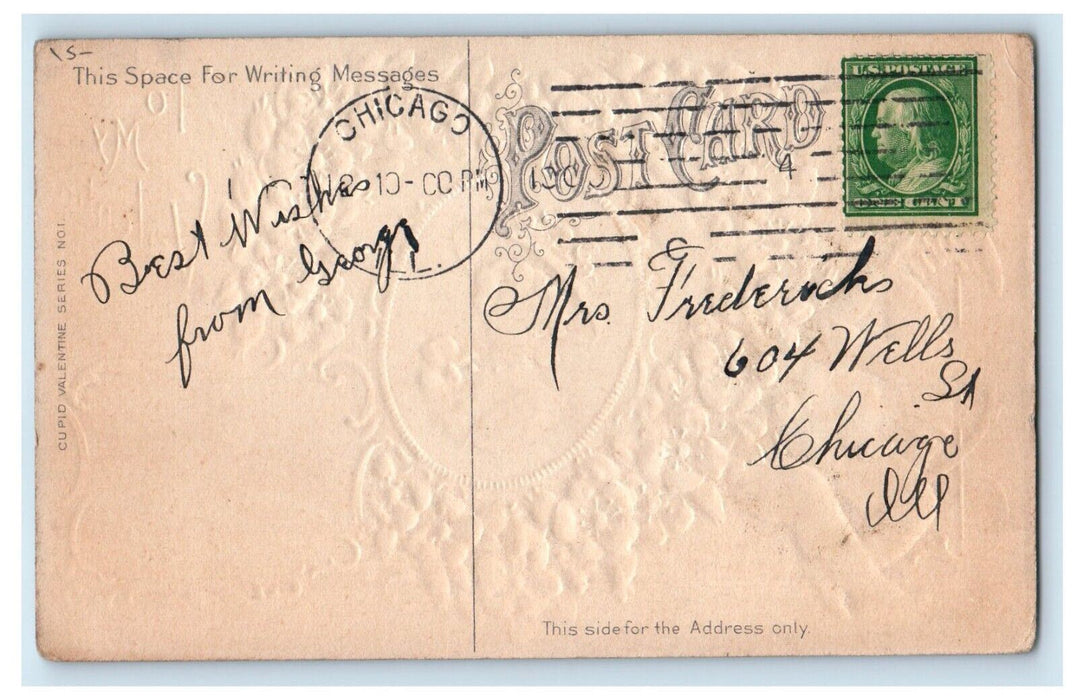 15-
This Space For Writing Messages
POST CARD
U.S. POSTAGE
ONE CENT
CHICAGO
10-00 PM
4
Best Wishes
from George
Mrs. Fredericks
604 Wells
St
Chicago
Ill
CUPID VALENTINE SERIES NO1.
This side for the Address only.
TO
MY